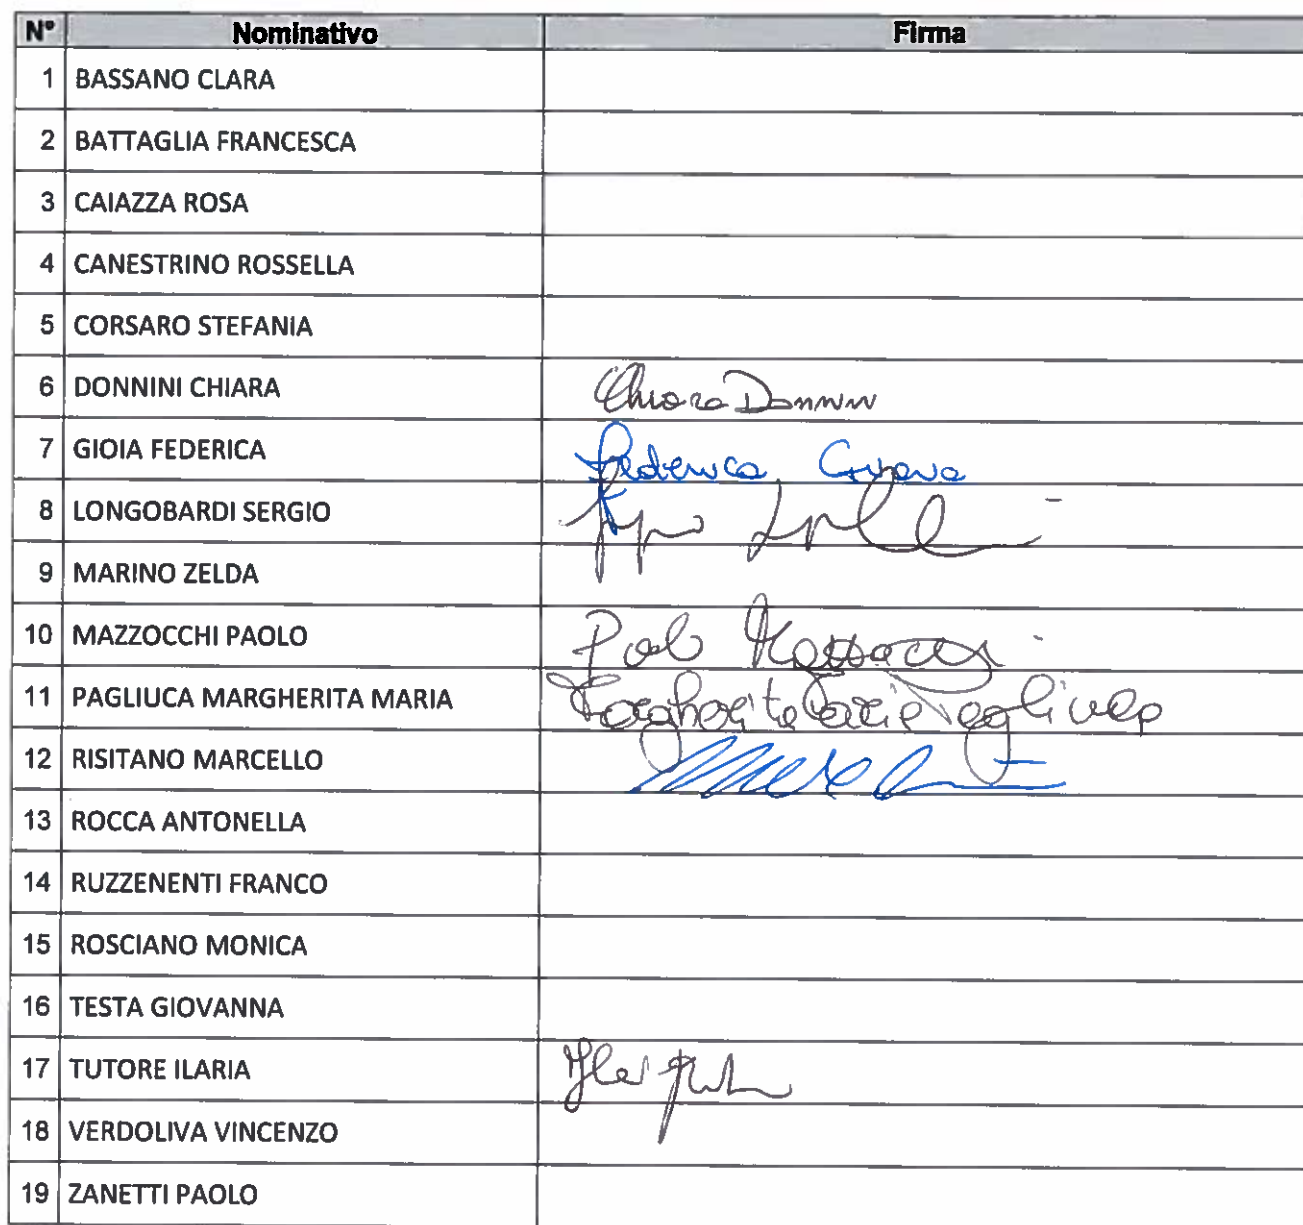 N° Nominativo Firma
1 BASSANO CLARA
2 BATTAGLIA FRANCESCA
3 CAIAZZA ROSA
4 CANESTRINO ROSSELLA
5 CORSARO STEFANIA
6 DONNINI CHIARA Chiara Donnini
7 GIOIA FEDERICA Federica Gioia
8 LONGOBARDI SERGIO
9 MARINO ZELDA
10 MAZZOCCHI PAOLO Paolo Mazzocchi
11 PAGLIUCA MARGHERITA MARIA Margherita Maria Pagliuca
12 RISITANO MARCELLO
13 ROCCA ANTONELLA
14 RUZZENENTI FRANCO
15 ROSCIANO MONICA
16 TESTA GIOVANNA
17 TUTORE ILARIA
18 VERDOLIVA VINCENZO
19 ZANETTI PAOLO